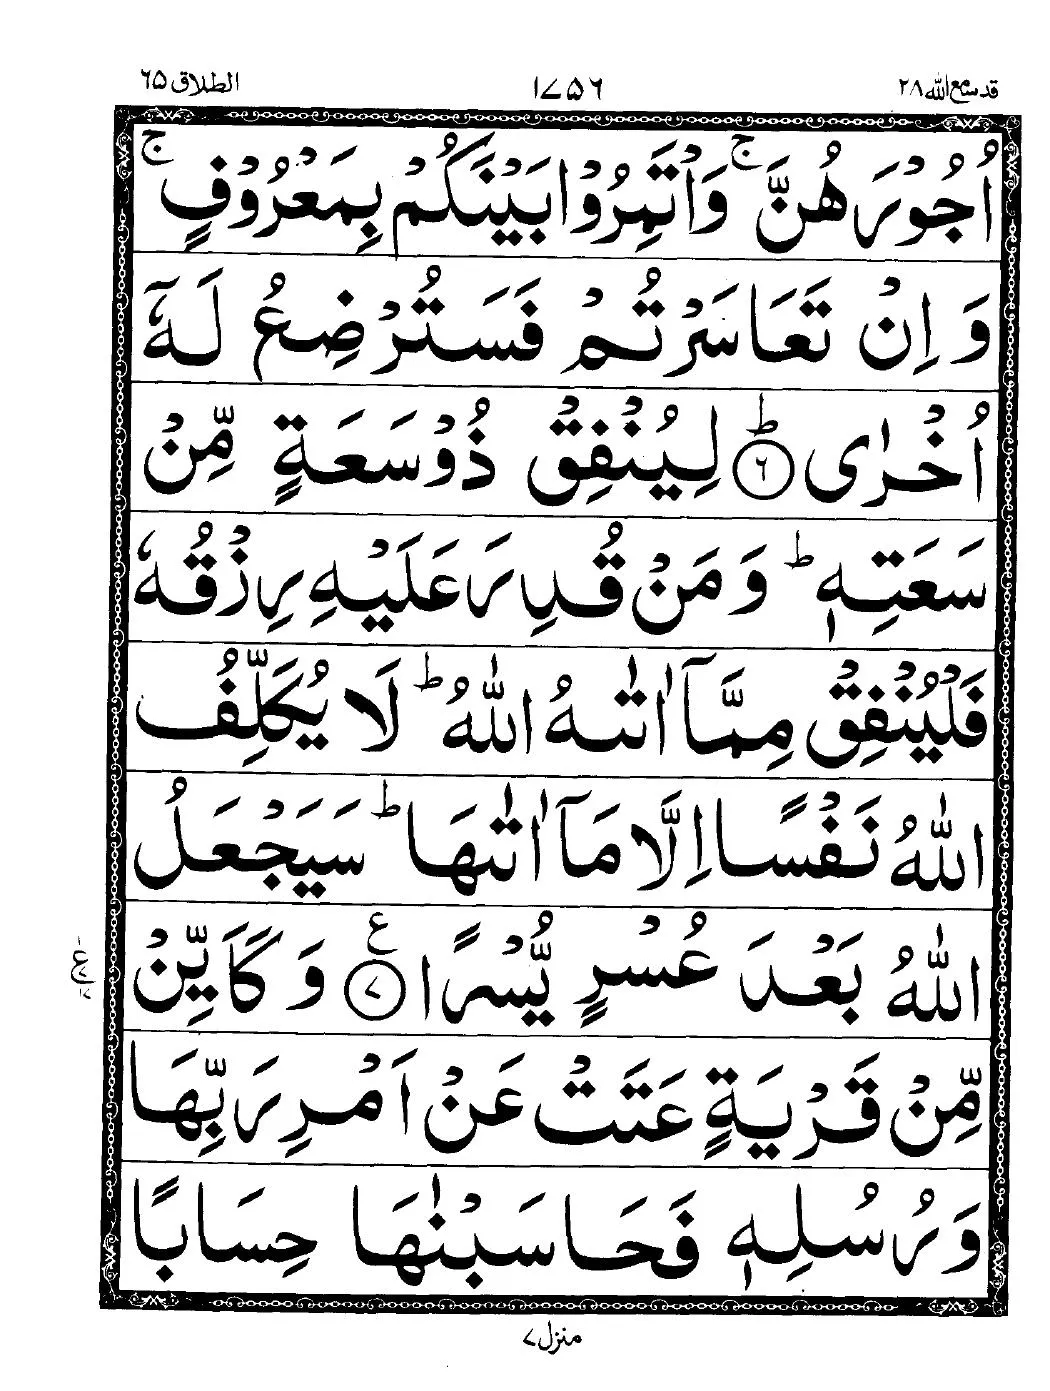 قد سمع الله ٢٨
١٧٥٦
الطلاق ٦٥
اُجُوْرَهُنَّ ۚ وَاْتَمِرُوْا بَيْنَكُمْ بِمَعْرُوْفٍ ۚ
وَاِنْ تَعَاسَرْتُمْ فَسَتُرْضِعُ لَهٗۤ
اُخْرٰى ؕ ﴿۶﴾ لِيُنْفِقْ ذُوْ سَعَةٍ مِّنْ
سَعَتِهٖ ؕ وَمَنْ قُدِرَ عَلَيْهِ رِزْقُهٗ
فَلْيُنْفِقْ مِمَّاۤ اٰتٰىهُ اللّٰهُ ؕ لَا يُكَلِّفُ
اللّٰهُ نَفْسًا اِلَّا مَاۤ اٰتٰىهَا ؕ سَيَجْعَلُ
اللّٰهُ بَعْدَ عُسْرٍ يُّسْرًا ﴿۷﴾ ع وَكَاَيِّنْ
مِّنْ قَرْيَةٍ عَتَتْ عَنْ اَمْرِ رَبِّهَا
وَرُسُلِهٖ فَحَاسَبْنٰهَا حِسَابًا
منزل ٧